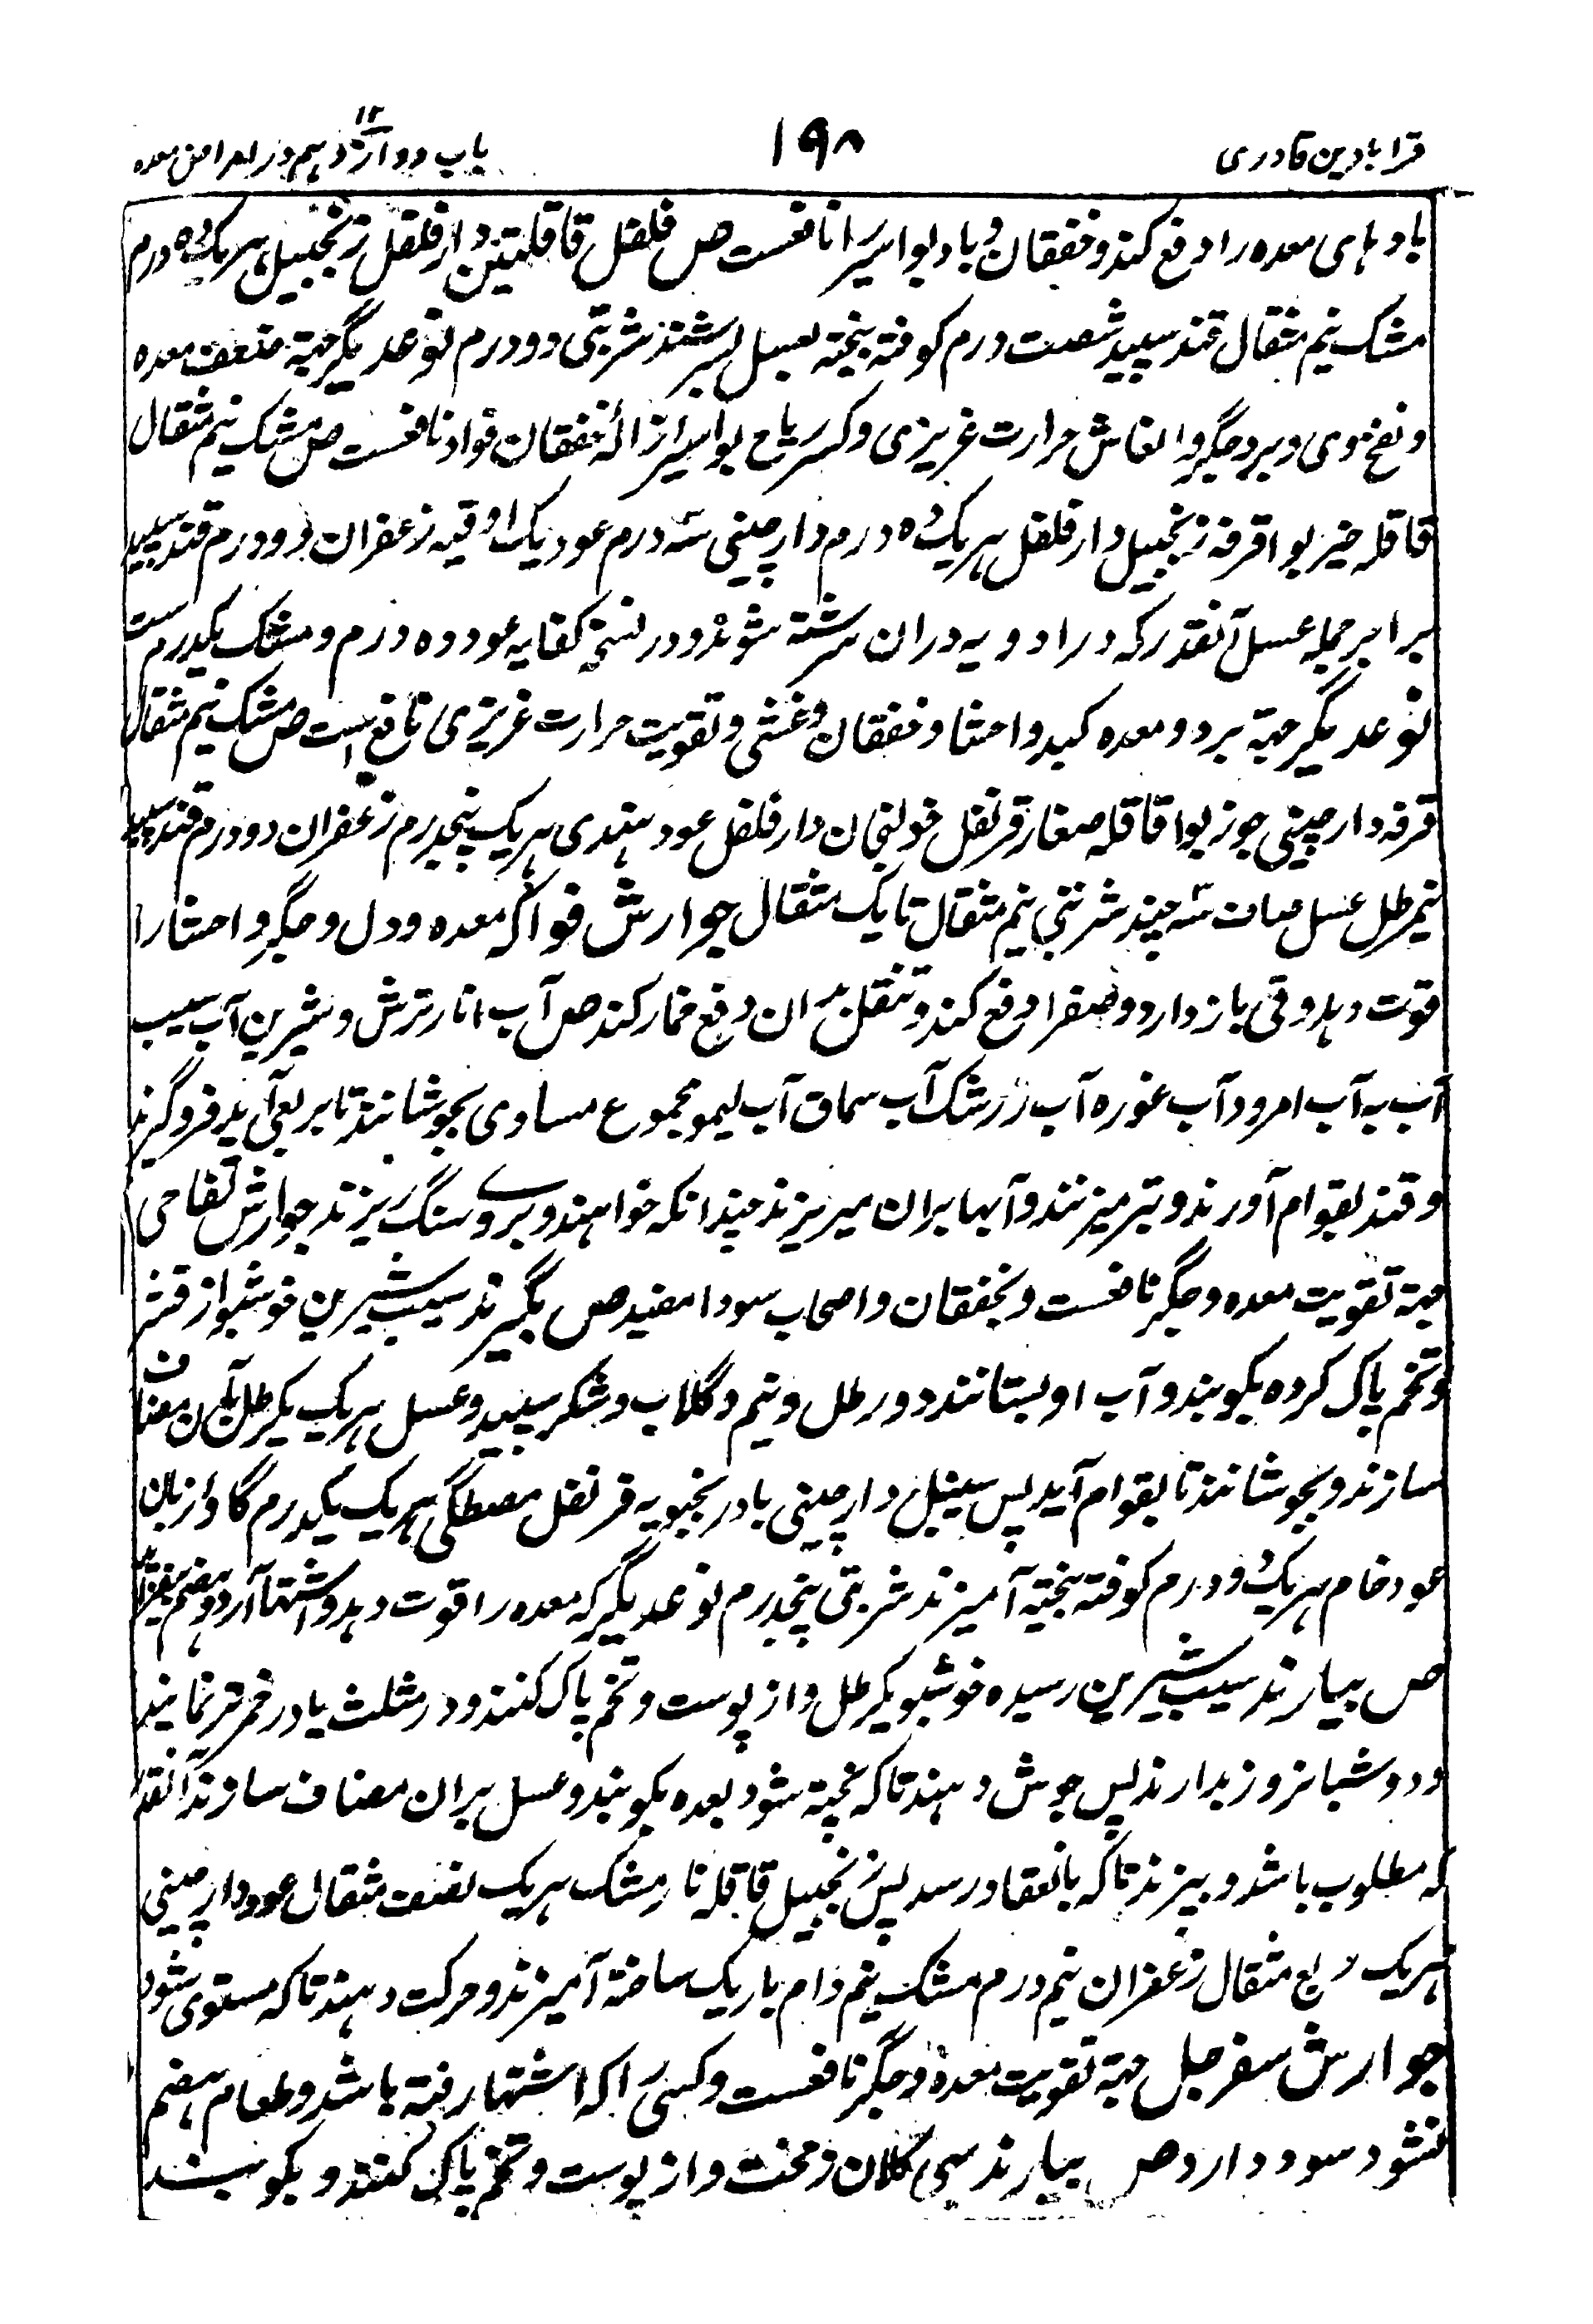 قرابادین قادری
۱۹۸
باب دوازدهم در امراض معده
۱۲
بادهای معده را دفع کند و خفقان و باد بواسیر را نافعست ص فلفل قاقلتین دارفلفل زنجبیل هریک ده درم
مشک نیم مثقال قند سپید شصت درم کوفته بیخته بعسل بسرشند شربتی دو درم نوعدیگر جهة ضعف معده
و نفخ وی و برد جگر و انعاش حرارت غریزی و کسر ریاح بواسیر ازالهٔ خفقان فواد نافعست ص مشک نیم مثقال
قاقله خیربوا قرفه زنجبیل دارفلفل هریک ده درم دارچینی سه درم عود یک اوقیه زعفران دو درم قند سپید
برابر جمله عسل آنقدر که در ادویه دران سرشته شوند و در نسخهٔ کفایه عود ده درم و مشک یکدرم ست
نوعدیگر جهة برد و معده کبد و احشا و خفقان و غشی و تقویت حرارت غریزی نافع است ص مشک نیم مثقال
قرفه دارچینی جوزبوا قاقله صغار قرنفل خولنجان دارفلفل عود هندی هریک پنجدرم زعفران دو درم قند سپید
نیمرطل عسل صاف سه چند شربتی نیم مثقال تا یک مثقال جوارش فواکه معده و دل و جگر و احشا را
قوت دهد و قی باز دارد و صفرا دفع کند و تنقل بران دفع خمار کند ص آب انار ترش و شیرین آب سیب
آب به آب امرود آب غوره آب زرشک آب سماق آب لیمو مجموع مساوی بجوشانند تا بربعی آید فرو گیرند
و قند بقوام آورند و تیز میزنند و آبها بران میریزند چندانکه خواهند و بروے سنگ ریزند جوارش تفاحی
جهة تقویت معده و جگر نافعست و بخفقان و اصحاب سودا مفید ص بگیرند سیب شیرین خوشبو از قشر
و تخم پاک کرده بکوبند و آب او بستانند دو رطل و نیم و گلاب و شکر سپید و عسل هریک یکرطل بآن مضاف
سازند و بجوشانند تا بقوام آید پس سنبل دارچینی بادرنجبویه قرنفل مصطگی هریک یکدرم گاوزبان
عود خام هریک دو درم کوفته بیخته آمیزند شربتی پنجدرم نوعدیگر که معده را قوت دهد و اشتها آرد و هضم بیفزاید
ص بیارند سیب شیرین رسیده خوشبو یکرطل و از پوست و تخم پاک کنند و در مثلث یا در خمر تر نمایند
و دو شبانروز بدارند پس جوش دهند تا که پخته شود بعده بکوبند و عسل بران مضاف سازند آنقدر
که مطلوب باشد و بپزند تا که بانعقاد رسد پس زنجبیل قاقله نارمشک هریک نصف مثقال عود دارچینی
هریک ربع مثقال زعفران نیم درم مشک نیم دام باریک ساخته آمیزند و حرکت دهند تا که مستوی شود
جوارش سفرجل جهة تقویت معده و جگر نافعست و کسی را که اشتها رفته باشد و طعام هضم
نشود سود دارد ص بیارند بهی کلان زمخت و از پوست و تخم پاک کنند و بکوبند